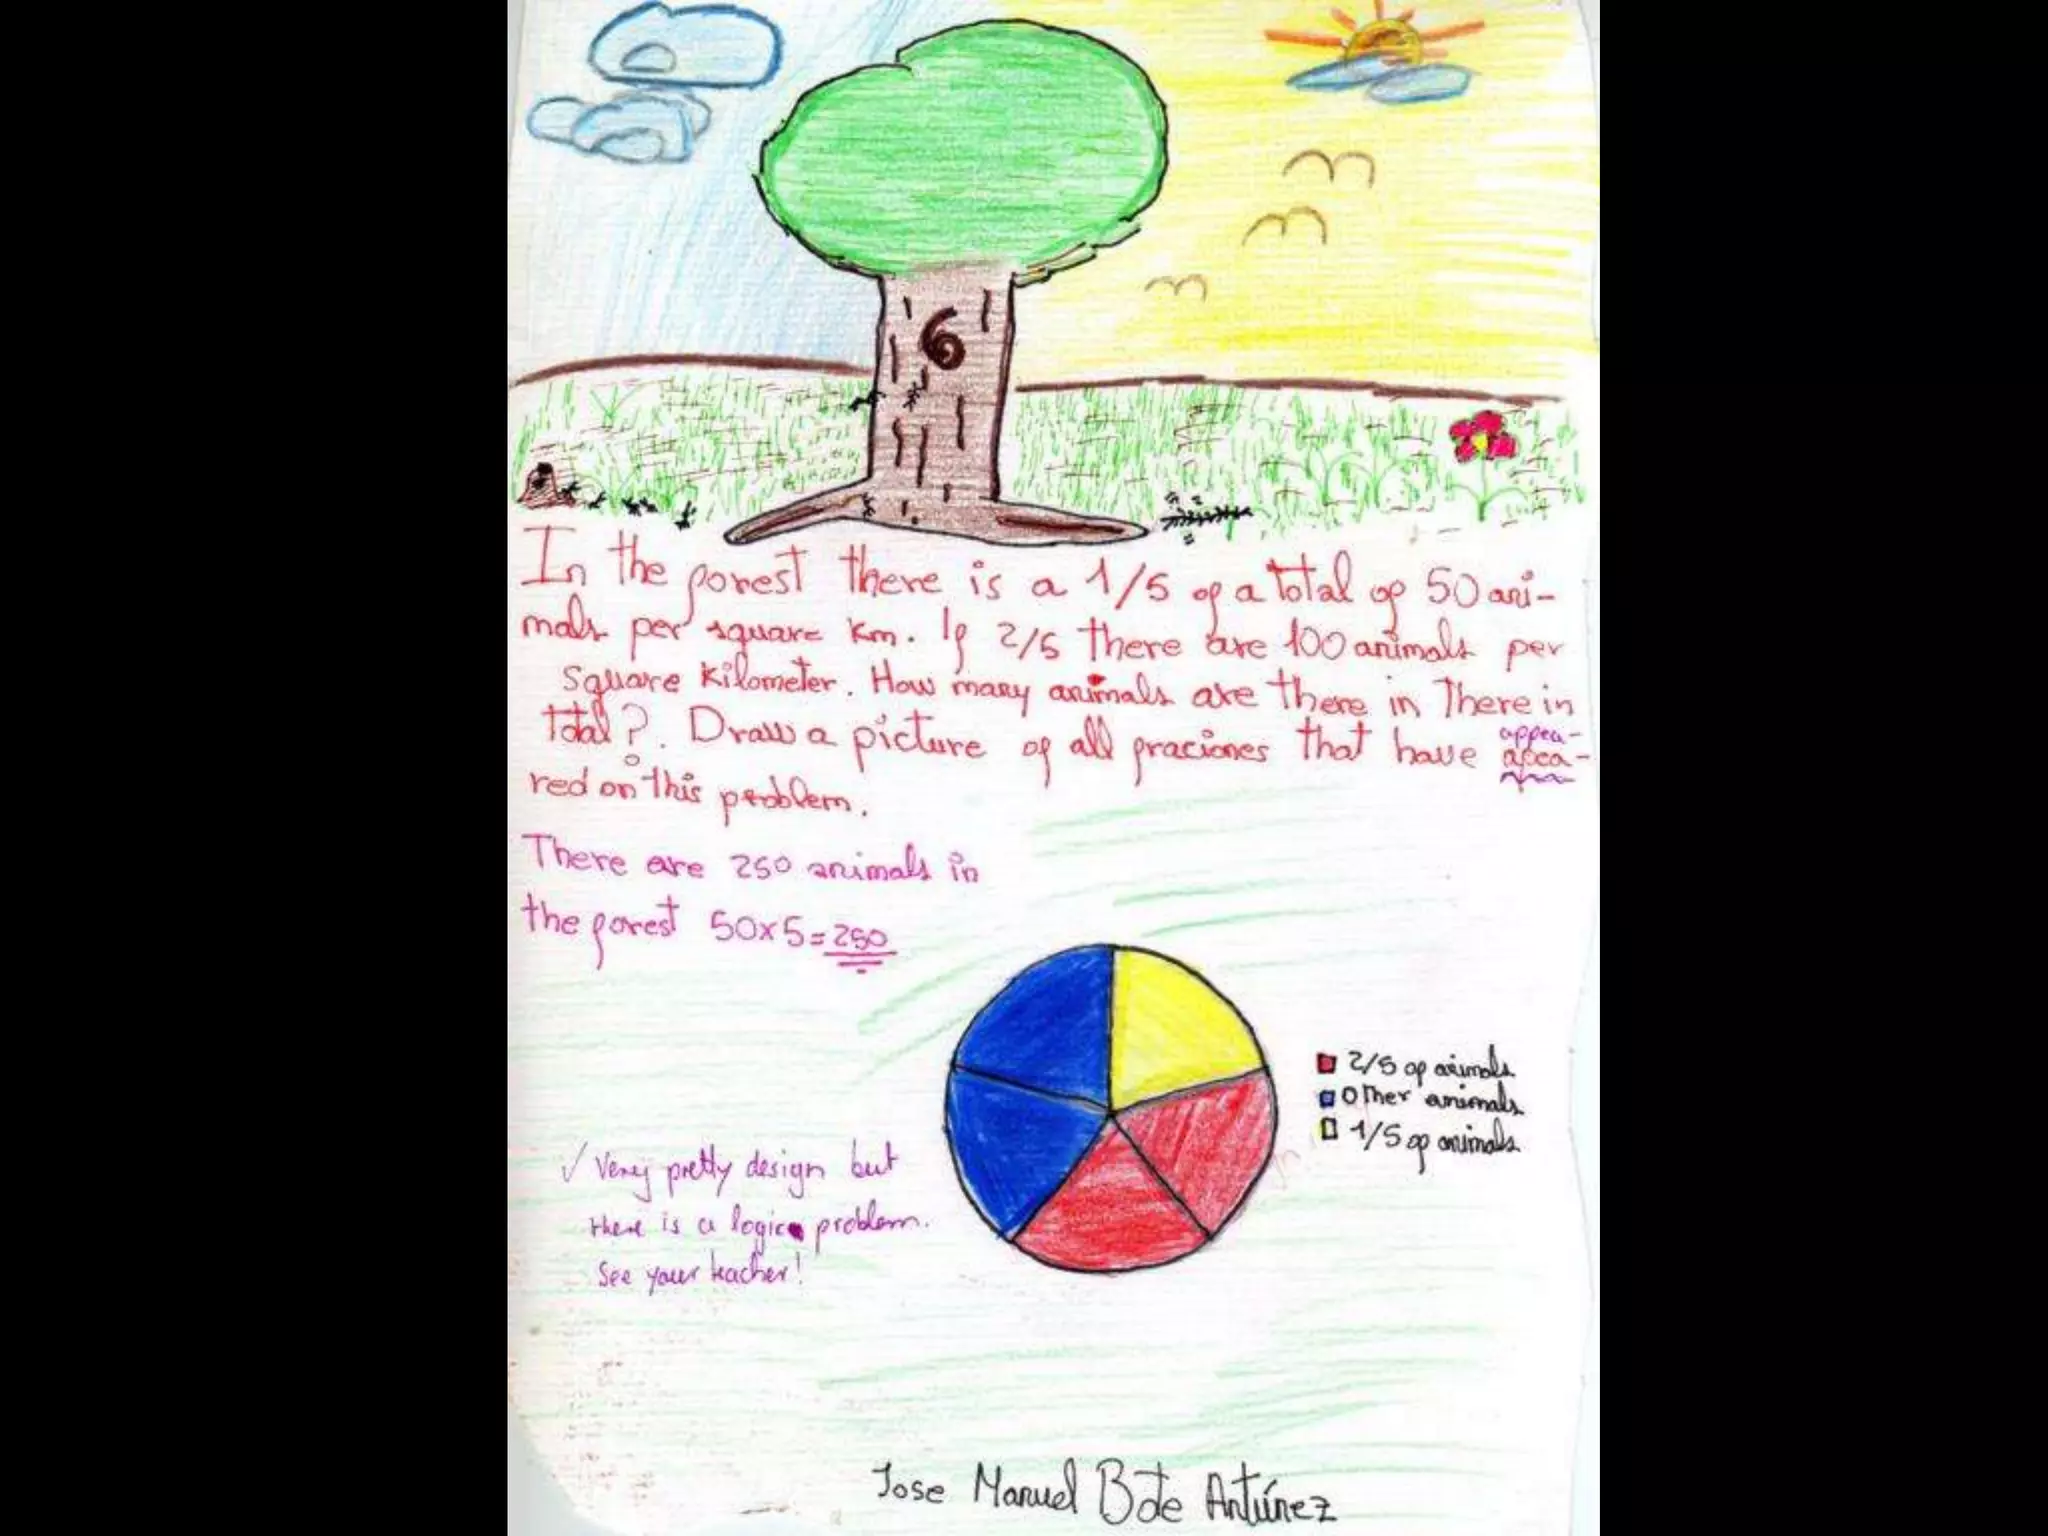 6
In the forest there is a 1/5 of a total of 50 ani-
mals per square km. If 2/5 there are 100 animals per
square Kilometer. How many animals are there in there in
total?. Draw a picture of all fraciones that have appea-
apea-
red on this problem.
There are 250 animals in
the forest 50x5=250
2/5 of animals
Other animals
1/5 of animals
✓ Very pretty design but
there is a logic problem.
See your teacher!
Jose Manuel Bote Antúnez